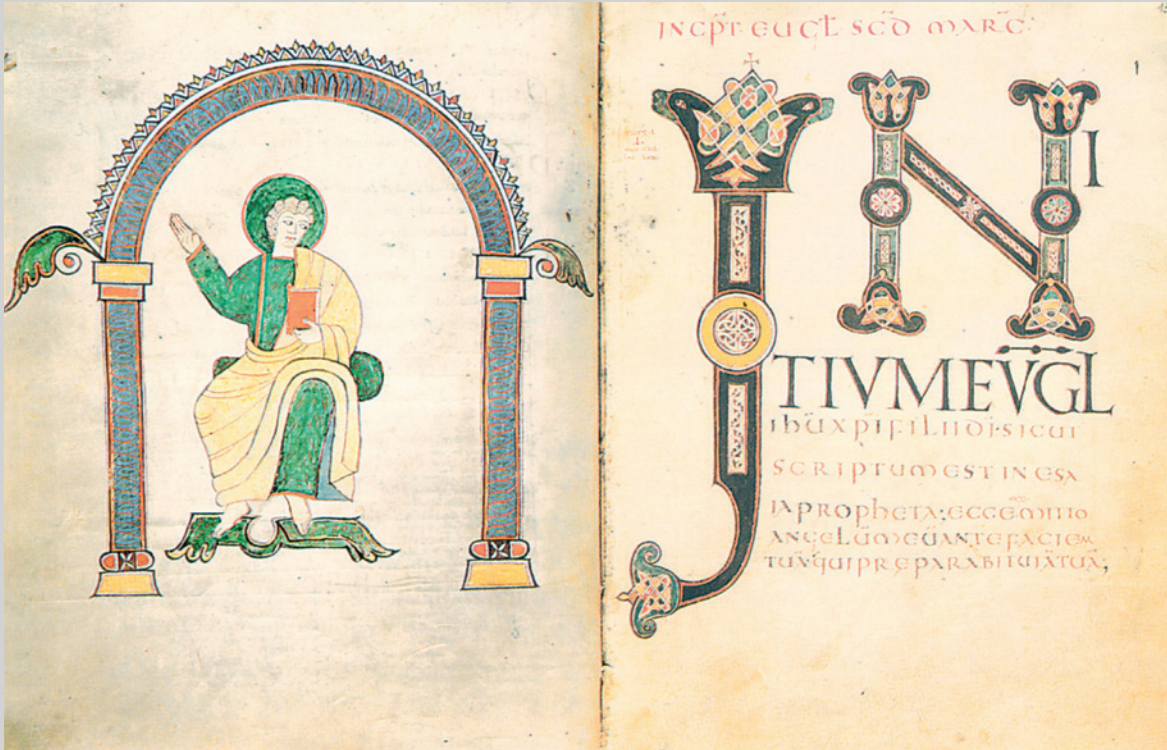 INCP̄T· EUGL̄ SCD̄ MARC̄·
INI
TIVM EV̄ḠL
IHŪ XPĪ FILII DĪ· SICUT
SCRIPTUM EST IN ESA
IA PROPHETA; ECCE MITTO
ANGELŪ MEŪ ANTE FACIEM
TUĀ QUI PREPARABIT UIĀ TUĀ;